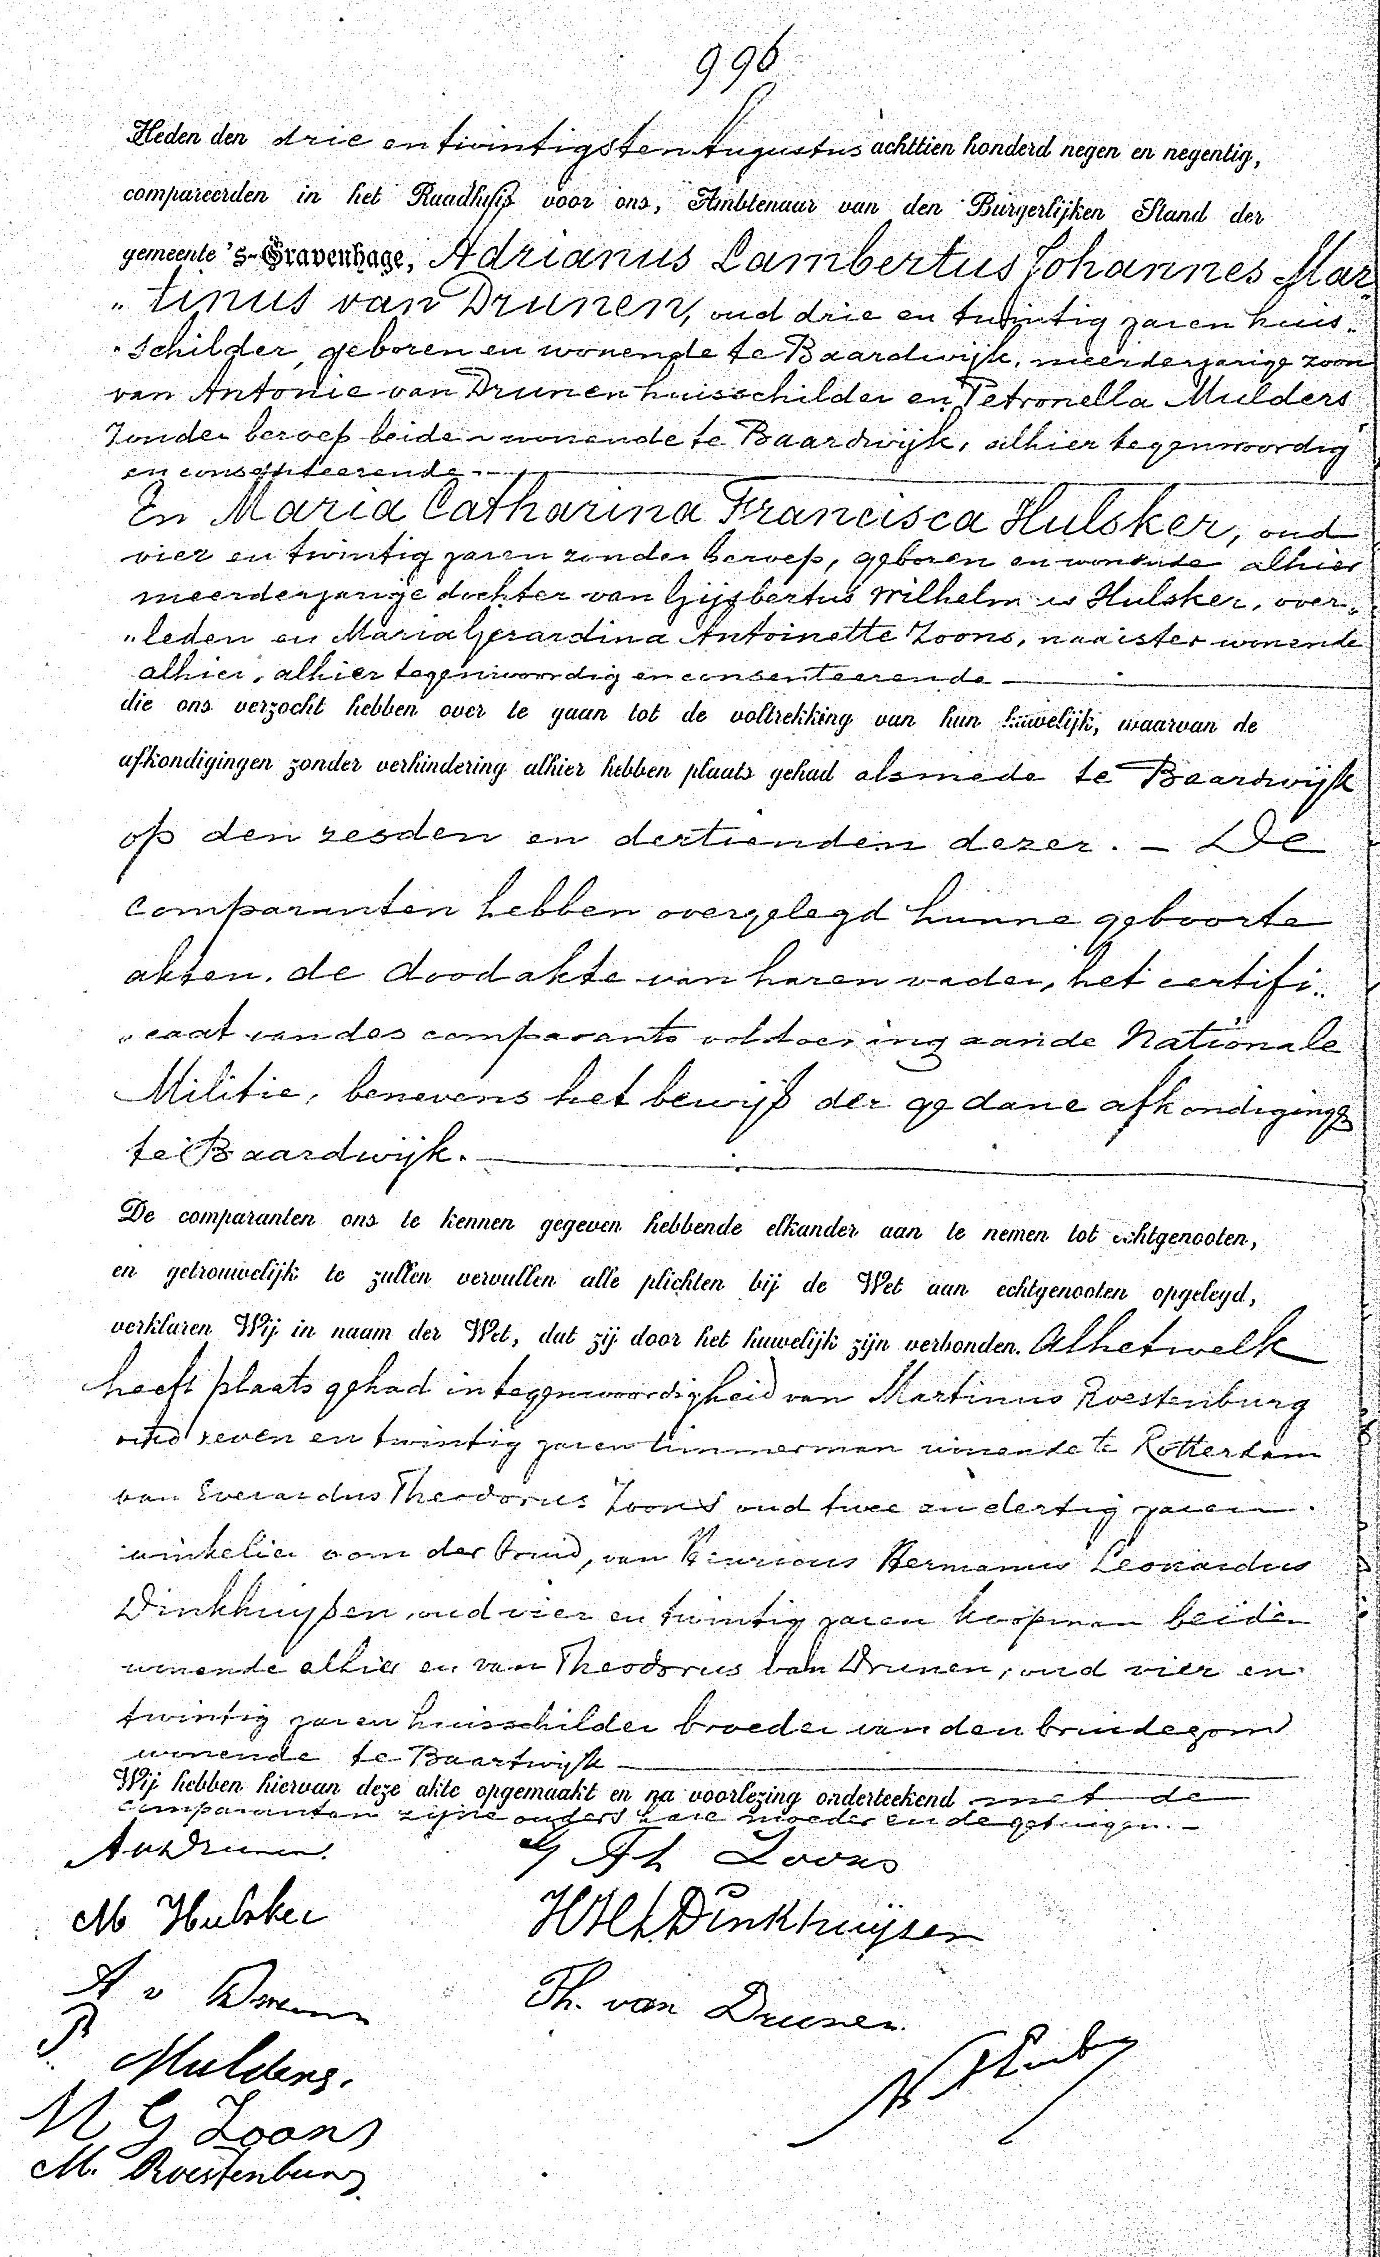 996
Heden den drie en twintigsten Augustus achttien honderd negen en negentig,
compareerden in het Raadhuis voor ons, Ambtenaar van den Burgerlijken Stand der
gemeente 's-Gravenhage, Adrianus Lambertus Johannes Mar-
"tinus van Drunen, oud drie en twintig jaren huis-
"schilder, geboren en wonende te Baardwijk, meerderjarige zoon
van Antonie van Drunen huisschilder en Petronella Mulders
zonder beroep beiden wonende te Baardwijk, alhier tegenwoordig
en consenteerende.
En Maria Catharina Francisca Hulsker, oud
vier en twintig jaren zonder beroep, geboren en wonende alhier
meerderjarige dochter van Gijsbertus Wilhelmus Hulsker, over-
"leden en Maria Gerardina Antoinette Zoons, naaister wonende
alhier, alhier tegenwoordig en consenteerende
die ons verzocht hebben over te gaan tot de voltrekking van hun huwelijk, waarvan de
afkondigingen zonder verhindering alhier hebben plaats gehad alsmede te Baardwijk
op den zesden en dertienden dezer. - De
comparanten hebben overgelegd hunne geboorte
akten, de doodakte van haren vader, het certifi-
"caat van des comparants voldoening aan de Nationale
Militie, benevens het bewijs der gedane afkondigingen
te Baardwijk.
De comparanten ons te kennen gegeven hebbende elkander aan te nemen tot echtgenooten,
en getrouwelijk te zullen vervullen alle plichten bij de Wet aan echtgenooten opgelegd,
verklaren Wij in naam der Wet, dat zij door het huwelijk zijn verbonden. Alhetwelk
heeft plaats gehad in tegenwoordigheid van Martinus Roestenburg
oud zeven en twintig jaren timmerman wonende te Rotterdam
van Everardus Theodorus Zoons oud twee en dertig jaren
winkelier oom der bruid, van Henricus Hermanus Leonardus
Dinkhuysen, oud vier en twintig jaren koopman beiden
wonende alhier en van Theodorus van Drunen, oud vier en
twintig jaren huisschilder broeder van den bruidegom
wonende te Baartwijk
Wij hebben hiervan deze akte opgemaakt en na voorlezing onderteekend met de
comparanten zijne ouders hare moeder en de getuigen. -
A v Drunen. Th Zoons
M Hulsker HHL Dinkhuijsen
A v Drunen Th. van Drunen
P Mulders.
M G Zoons
M. Roestenburg